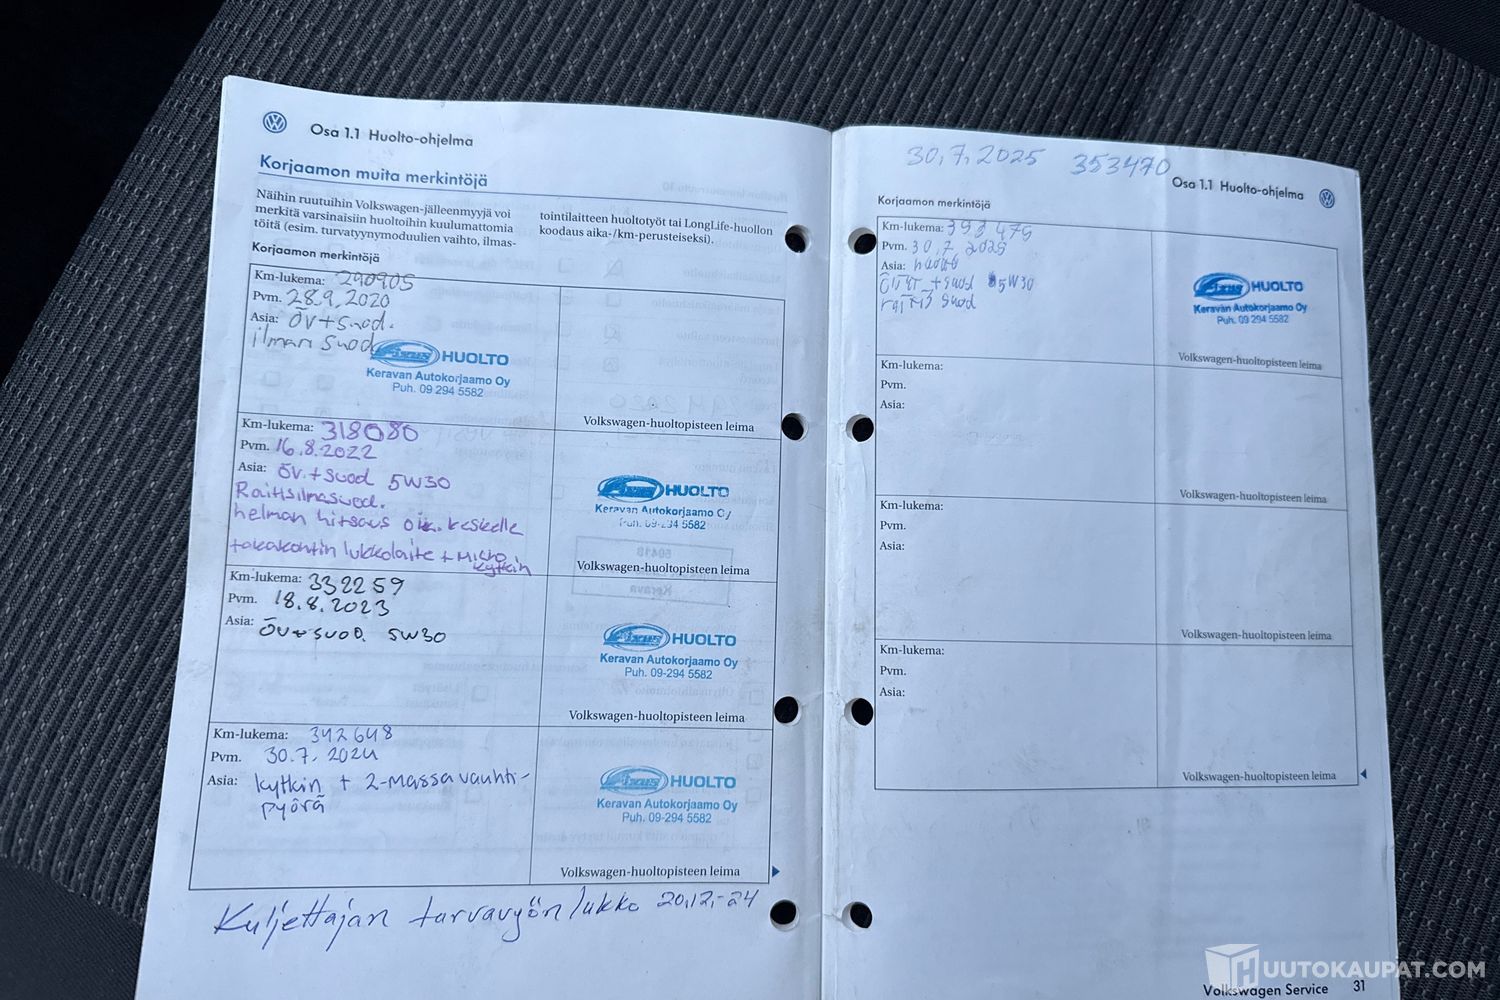 Osa 1.1 Huolto-ohjelma
Korjaamon muita merkintöjä
Näihin ruutuihin Volkswagen-jälleenmyyjä voi
merkitä varsinaisiin huoltoihin kuulumattomia
töitä (esim. turvatyynymoduulien vaihto, ilmas-
tointilaitteen huoltotyöt tai LongLife-huollon
koodaus aika-/km-perusteiseksi).
Korjaamon merkintöjä
Km-lukema: 290905
Pvm. 28.9.2020
Asia: ÖV+suod.
ilman suod
Axus HUOLTO
Keravan Autokorjaamo Oy
Puh. 09 294 5582
Volkswagen-huoltopisteen leima
Km-lukema: 318080
Pvm. 16.8.2022
Asia: ÖV.+suod 5W30
Raitisilmasuod.
helman hitsaus oik. keskelle
takakontin lukkolaite + mikro
kytkin
Axus HUOLTO
Keravan Autokorjaamo Oy
Puh. 09-294 5582
Volkswagen-huoltopisteen leima
Km-lukema: 332259
Pvm. 18.8.2023
Asia: ÖV+suod. 5W30
Axus HUOLTO
Keravan Autokorjaamo Oy
Puh. 09-294 5582
Volkswagen-huoltopisteen leima
Km-lukema: 342648
Pvm. 30.7.2024
Asia: kytkin + 2-massavauhti-
pyörä
Axus HUOLTO
Keravan Autokorjaamo Oy
Puh. 09-294 5582
Volkswagen-huoltopisteen leima
Kuljettajan turvavyön lukko 20.12.-24
30.7.2025 353470
Osa 1.1 Huolto-ohjelma
Korjaamon merkintöjä
Km-lukema:
Pvm. 30.7.2025
Asia: huolto
+suod 5W30
raitis suod
Axus HUOLTO
Keravan Autokorjaamo Oy
Puh. 09 294 5582
Volkswagen-huoltopisteen leima
Km-lukema:
Pvm.
Asia:
Volkswagen-huoltopisteen leima
Km-lukema:
Pvm.
Asia:
Volkswagen-huoltopisteen leima
Km-lukema:
Pvm.
Asia:
Volkswagen-huoltopisteen leima
Volkswagen Service 31
HUUTOKAUPAT.COM